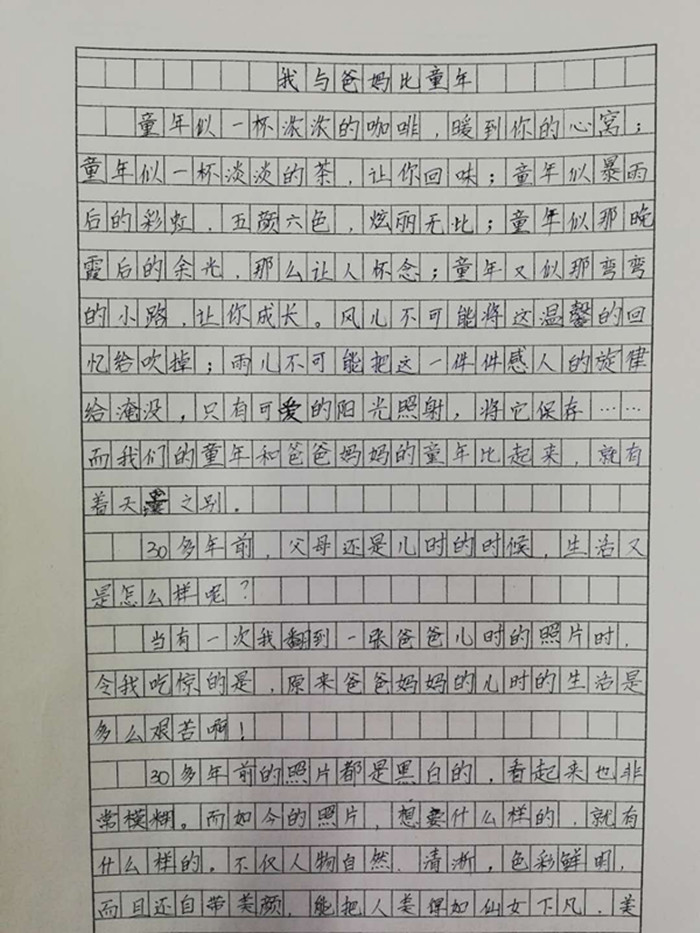 我与爸妈比童年
童年似一杯浓浓的咖啡，暖到你的心窝；
童年似一杯淡淡的茶，让你回味；童年似暴雨
后的彩虹，五颜六色，炫丽无比；童年似那晚
霞后的余光，那么让人怀念；童年又似那弯弯
的小路，让你成长。风儿不可能将这温馨的回
忆给吹掉；雨儿不可能把这一件件感人的旋律
给淹没，只有可爱的阳光照射，将它保存……
而我们的童年和爸爸妈妈的童年比起来，就有
着天之别。
30多年前，父母还是儿时的时候，生活又
是怎么样呢？
当有一次我翻到一张爸爸儿时的照片时，
令我吃惊的是，原来爸爸妈妈的儿时的生活是
多么艰苦啊！
30多年前的照片都是黑白的，看起来也非
常模糊。而如今的照片，想要什么样的，就有
什么样的。不仅人物自然、清晰，色彩鲜明，
而且还自带美颜，能把人美得如仙女下凡，美